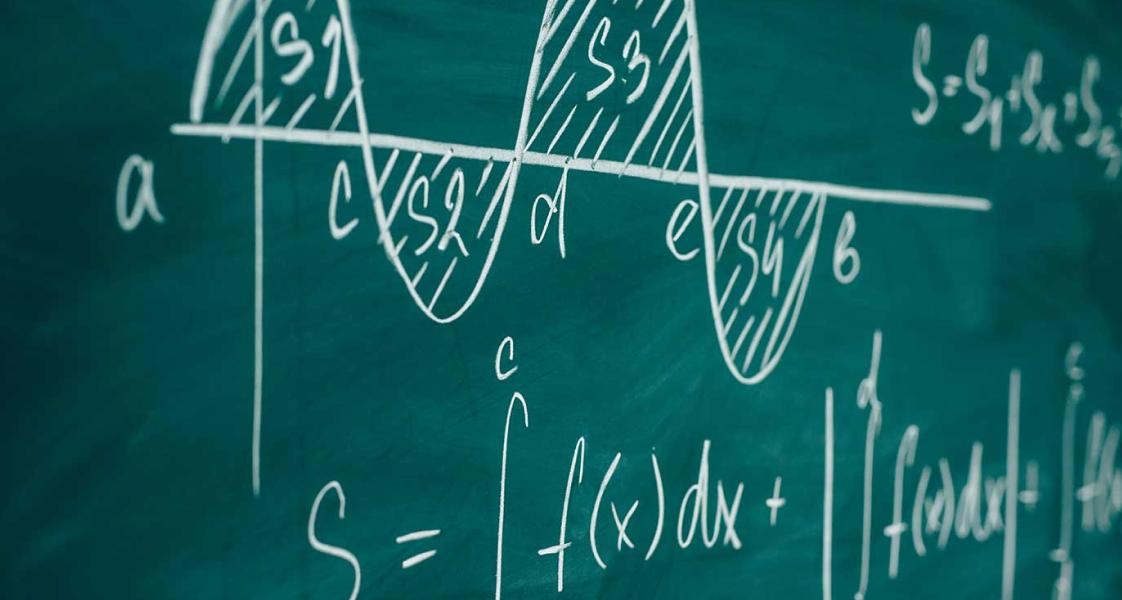 S1 S3
S=S1+S2+S3
a c S2 d e S4 b
c d
S = ∫ f(x) dx + | ∫ f(x) dx | + ∫